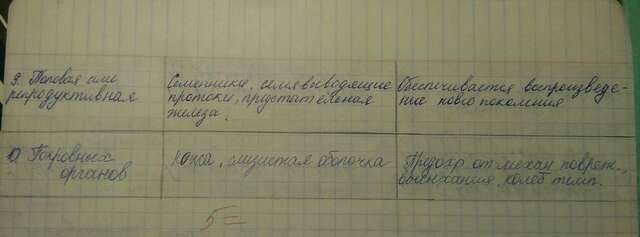 9. Половая или
репродуктивная
Семенники, семявыводящие
протоки, предстательная
железа.
Обеспечивается воспроизведе-
ние нового поколения
10 Покровных
органов
Кожа, слизистая оболочка
Предохр от механ повреж.,
высыхания, колеб темп.
5=